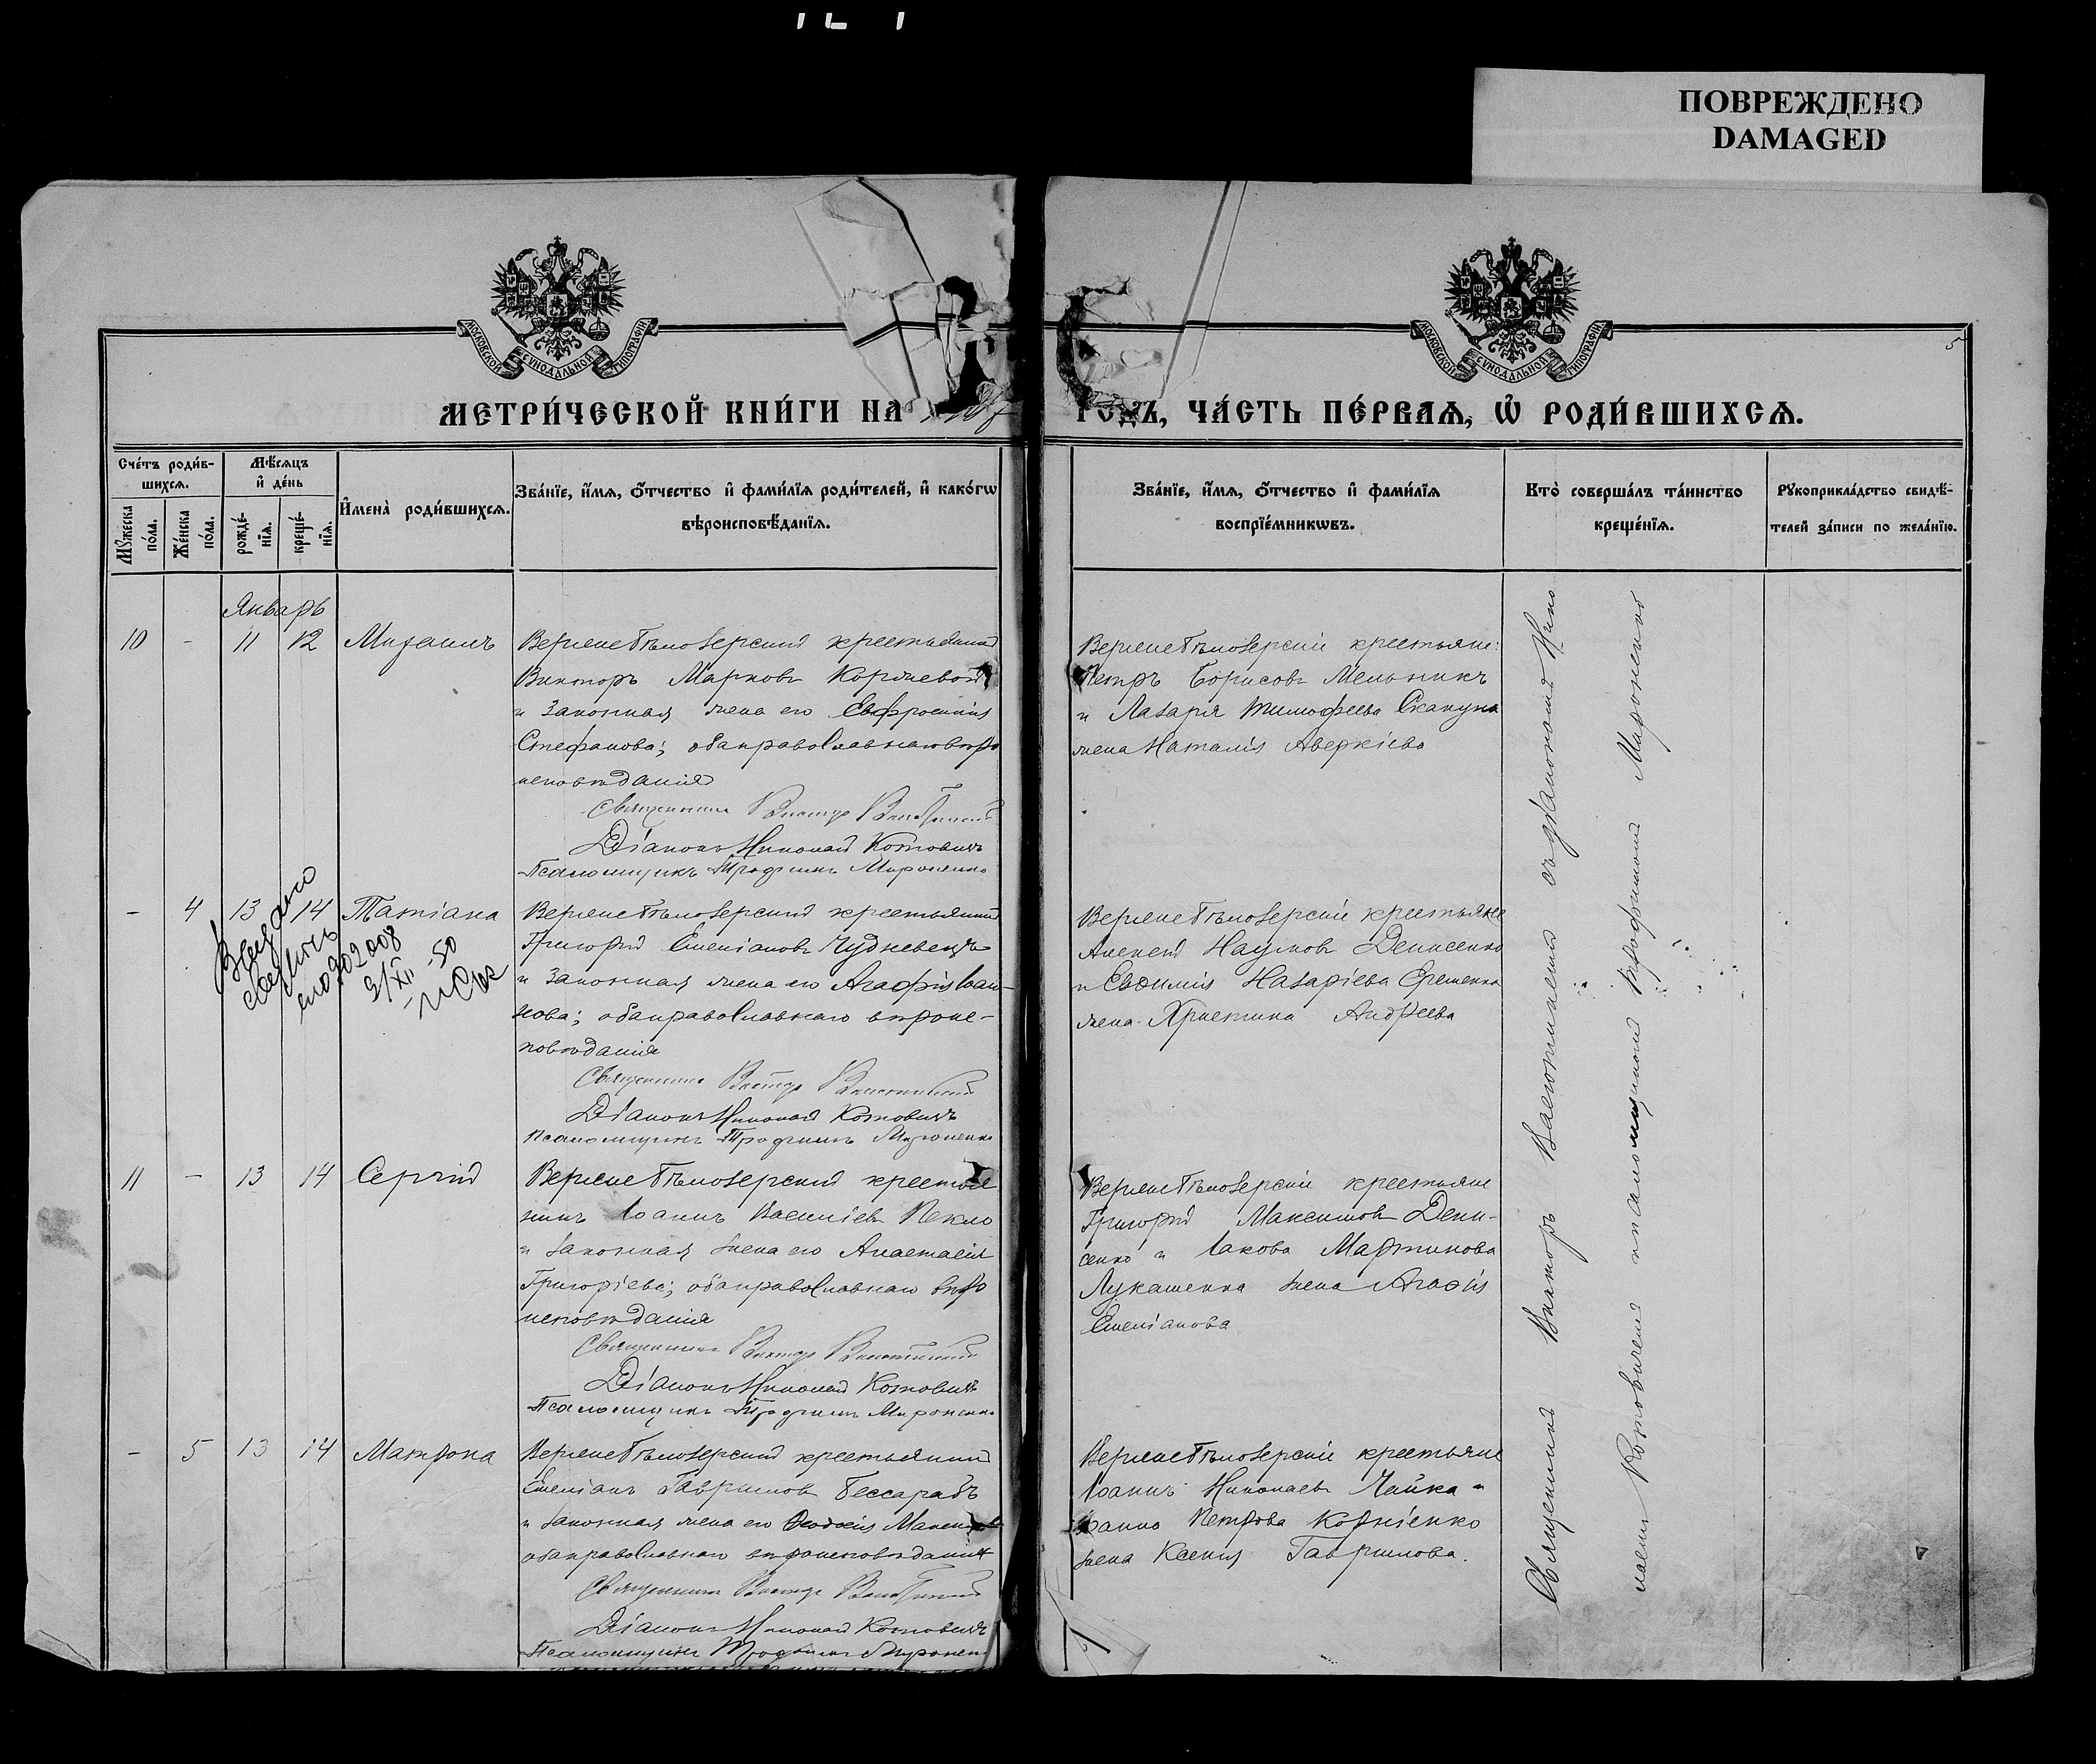 ПОВРЕЖДЕНО
DAMAGED
МОСКОВСКОЙ СѴНОДАЛЬНОЙ ТИПОГРАФІИ
МОСКОВСКОЙ СѴНОДАЛЬНОЙ ТИПОГРАФІИ
5
МЕТРИ́ЧЕСКОЙ КНИ́ГИ НА
ГОДЪ, ЧА́СТЬ ПЕ́РВАѦ, Ѡ҆ РОДИ́ВШИХСѦ.
Сче́тъ роди́в-
шихсѧ.
Мѣ́сѧцъ
и҆ де́нь
Мꙋ́жеска
по́ла.
Же́нска
по́ла.
рожде́-
нїѧ.
креще́-
нїѧ.
И҆мена̀ роди́вшихсѧ.
Зва́нїе, и҆́мѧ, ѻ҆́тчество и҆ фами́лїѧ роди́телей, и҆ како́гѡ
вѣроисповѣ́данїѧ.
Зва́нїе, и҆́мѧ, ѻ҆́тчество и҆ фами́лїѧ
воспрїе́мникѡвъ.
Кто̀ соверша́лъ та́инство
креще́нїѧ.
Рꙋкоприкла́дство свидѣ́-
телей за́писи по жела́нїю.
Январь
10 - 11 12 Михаилъ
Верхнебѣлозерскій крестьянинъ
Викторъ Марковъ Коржевой
и законная жена его Евфросинія
Стефанова; оба православнаго вѣро
исповѣданія
Священникъ Викторъ
Діаконъ Николай Котовичъ
Псаломщикъ Трофимъ Мироненко
Верхнебѣлозерскіе крестьяне:
Петръ Борисовъ Мельникъ
и Лазаря Тимофеева Скакуна
жена Наталія Аверкіева
- 4 13 14 Татіана
Выдано
Верхнебѣлозерскій крестьянинъ
Григорій Емеліановъ Чудневецъ
и законная жена его Агафія Іоан-
нова; оба православнаго вѣроис-
повѣданія
Священникъ Викторъ
Діаконъ Николай Котовичъ
Псаломщикъ Трофимъ Мироненко
Верхнебѣлозерскіе крестьяне
Алексій Наумовъ Денисенко
и Евѳимія Назаріева Еременка
жена Христина Андреева
11 - 13 14 Сергій
Верхнебѣлозерскій крестья
нинъ Іоаннъ Василіевъ Пекло
и законная жена его Анастасія
Григоріева; оба православнаго вѣро
исповѣданія
Священникъ Викторъ
Діаконъ Николай Котовичъ
Псаломщикъ Трофимъ Мироненко
Верхнебѣлозерскіе крестьяне
Григорій Максимовъ Дени-
сенко и Іакова Мартинова
Лукашенка жена Агаѳія
Емеліанова
- 5 13 14 Матрона
Верхнебѣлозерскій крестьянинъ
Емеліанъ Гавриловъ Бессарабъ
и законная жена его Ѳеодосія
оба православнаго вѣроисповѣданія
Священникъ Викторъ
Діаконъ Николай Котовичъ
Псаломщикъ Трофимъ Мироненко
Верхнебѣлозерскіе крестьяне
Іоаннъ Николаевъ Чайка и
Іоанна Петрова Корніенко
жена Ксенія Гаврилова.
Священникъ Викторъ съ діакономъ Нико
лаемъ Котовичемъ и псаломщикомъ Трофимомъ Мироненко